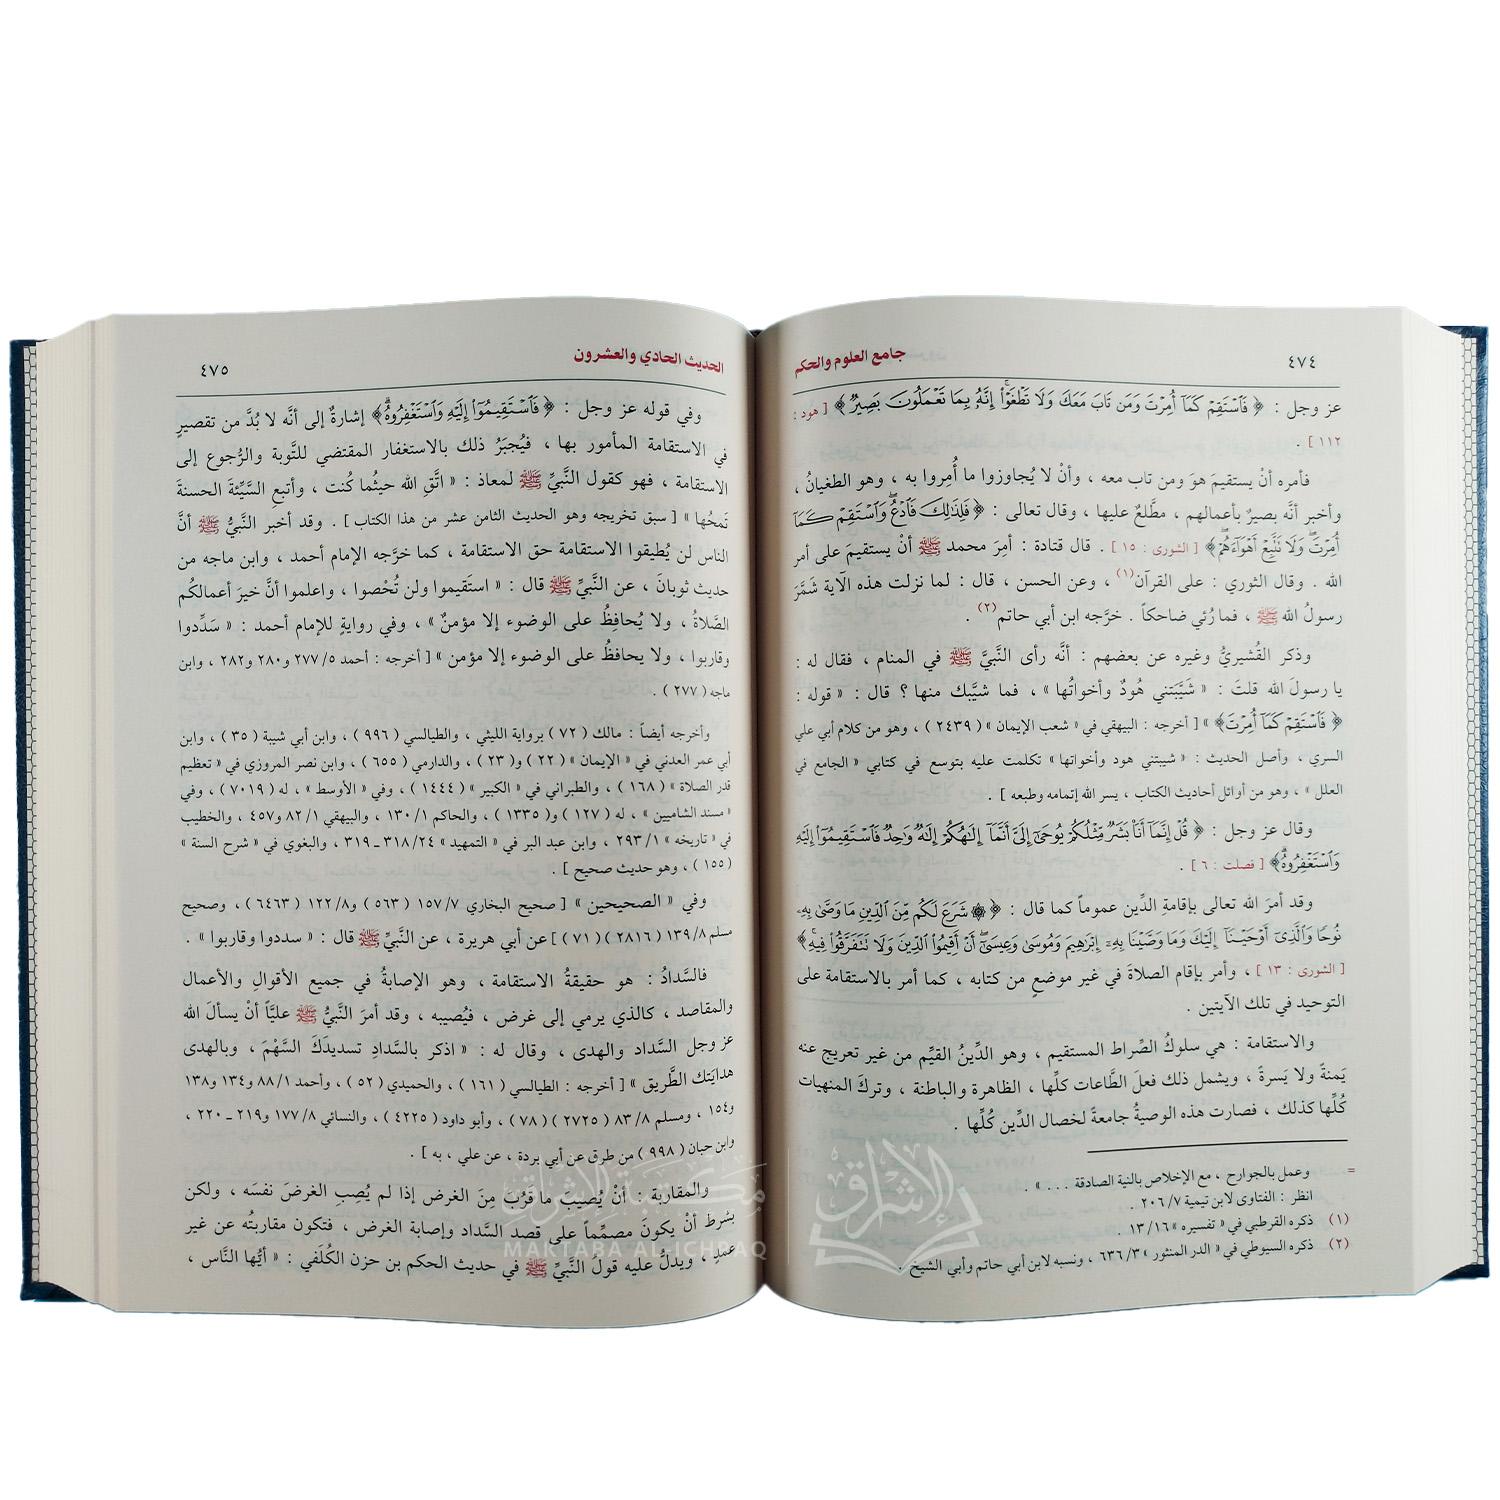 ٤٧٤
جامع العلوم والحكم
عز وجل : ﴿ فَاسْتَقِمْ كَمَا أُمِرْتَ وَمَن تَابَ مَعَكَ وَلَا تَطْغَوْا إِنَّهُ بِمَا تَعْمَلُونَ بَصِيرٌ ﴾ [ هود :
١١٢ ] .
فأمره أنْ يستقيمَ هوَ ومن تاب معه ، وأنْ لا يُجاوزوا ما أُمِروا به ، وهو الطغيانُ ،
وأخبر أنَّه بصيرٌ بأعمالهم ، مطَّلعٌ عليها ، وقال تعالى : ﴿ فَلِذَٰلِكَ فَادْعُ وَاسْتَقِمْ كَمَا
أُمِرْتَ وَلَا تَتَّبِعْ أَهْوَاءَهُمْ ﴾ [ الشورى : ١٥ ] . قال قتادة : أمِرَ محمد ﷺ أنْ يستقيمَ على أمر
الله . وقال الثوري : على القرآن(١) ، وعن الحسن ، قال : لما نزلت هذه الآية شَمَّرَ
رسولُ الله ﷺ ، فما رُئي ضاحكاً . خرَّجه ابن أبي حاتم(٢) .
وذكر القُشيريُّ وغيره عن بعضهم : أنَّه رأى النَّبيَّ ﷺ في المنام ، فقال له :
يا رسولَ الله قلتَ : « شَيَّبَتني هُودٌ وأخواتُها » ، فما شيَّبك منها ؟ قال : « قوله :
﴿ فَاسْتَقِمْ كَمَا أُمِرْتَ ﴾ » [ أخرجه : البيهقي في « شعب الإيمان » ( ٢٤٣٩ ) ، وهو من كلام أبي علي
السري ، وأصل الحديث : « شيبتني هود وأخواتها » تكلمت عليه بتوسع في كتابي « الجامع في
العلل » ، وهو من أوائل أحاديث الكتاب ، يسر الله إتمامه وطبعه ] .
وقال عز وجل : ﴿ قُلْ إِنَّمَا أَنَا بَشَرٌ مِّثْلُكُمْ يُوحَىٰ إِلَيَّ أَنَّمَا إِلَٰهُكُمْ إِلَٰهٌ وَاحِدٌ فَاسْتَقِيمُوا إِلَيْهِ
وَاسْتَغْفِرُوهُ ﴾ [ فصلت : ٦ ] .
وقد أمرَ الله تعالى بإقامةِ الدِّين عموماً كما قال : ﴿ ۞ شَرَعَ لَكُم مِّنَ الدِّينِ مَا وَصَّىٰ بِهِ
نُوحًا وَالَّذِي أَوْحَيْنَا إِلَيْكَ وَمَا وَصَّيْنَا بِهِ إِبْرَاهِيمَ وَمُوسَىٰ وَعِيسَىٰ أَنْ أَقِيمُوا الدِّينَ وَلَا تَتَفَرَّقُوا فِيهِ ﴾
[ الشورى : ١٣ ] ، وأمر بإقام الصلاةَ في غير موضعٍ من كتابه ، كما أمر بالاستقامة على
التوحيد في تلك الآيتين .
والاستقامة : هي سلوكُ الصِّراط المستقيم ، وهو الدِّينُ القيِّم من غير تعريج عنه
يَمنةً ولا يَسرةً ، ويشمل ذلك فعلَ الطَّاعات كلِّها ، الظاهرة والباطنة ، وتركَ المنهيات
كُلِّها كذلك ، فصارت هذه الوصيةُ جامعةً لخصال الدِّين كُلِّها .
= وعمل بالجوارح ، مع الإخلاص بالنية الصادقة . . . » .
انظر : الفتاوى لابن تيمية ٢٠٦/٧ .
(١) ذكره القرطبي في « تفسيره » ١٣/١٦ .
(٢) ذكره السيوطي في « الدر المنثور » ٦٣٦/٣ ، ونسبه لابن أبي حاتم وأبي الشيخ .
الحديث الحادي والعشرون
٤٧٥
وفي قوله عز وجل : ﴿ فَاسْتَقِيمُوا إِلَيْهِ وَاسْتَغْفِرُوهُ ﴾ إشارةٌ إلى أنَّه لا بُدَّ من تقصيرٍ
في الاستقامة المأمور بها ، فيُجبَرُ ذلك بالاستغفار المقتضي للتَّوبة والرُّجوع إلى
الاستقامة ، فهو كقول النَّبيِّ ﷺ لمعاذ : « اتَّقِ الله حيثُما كُنت ، وأتبعِ السَّيِّئةَ الحسنةَ
تَمحُها » [ سبق تخريجه وهو الحديث الثامن عشر من هذا الكتاب ] . وقد أخبر النَّبيُّ ﷺ أنَّ
الناس لن يُطيقوا الاستقامة حق الاستقامة ، كما خرَّجه الإمام أحمد ، وابن ماجه من
حديث ثوبانَ ، عن النَّبيِّ ﷺ قال : « استَقيموا ولن تُحْصوا ، واعلموا أنَّ خيرَ أعمالكُم
الصَّلاةُ ، ولا يُحافِظُ على الوضوء إلا مؤمنٌ » ، وفي روايةٍ للإمام أحمد : « سَدِّدوا
وقاربوا ، ولا يحافظُ على الوضوء إلا مؤمن » [ أخرجه : أحمد ٢٧٧/٥ و٢٨٠ و٢٨٢ ، وابن
ماجه ( ٢٧٧ ) .
وأخرجه أيضاً : مالك ( ٧٢ ) برواية الليثي ، والطيالسي ( ٩٩٦ ) ، وابن أبي شيبة ( ٣٥ ) ، وابن
أبي عمر العدني في « الإيمان » ( ٢٢ ) و( ٢٣ ) ، والدارمي ( ٦٥٥ ) ، وابن نصر المروزي في « تعظيم
قدر الصلاة » ( ١٦٨ ) ، والطبراني في « الكبير » ( ١٤٤٤ ) ، وفي « الأوسط » ، له ( ٧٠١٩ ) ، وفي
« مسند الشاميين » ، له ( ١٢٧ ) و( ١٣٣٥ ) ، والحاكم ١٣٠/١ ، والبيهقي ٨٢/١ و٤٥٧ ، والخطيب
في « تاريخه » ٢٩٣/١ ، وابن عبد البر في « التمهيد » ٣١٨/٢٤ ـ ٣١٩ ، والبغوي في « شرح السنة »
( ١٥٥ ) ، وهو حديث صحيح ] .
وفي « الصحيحين » [ صحيح البخاري ١٥٧/٧ ( ٥٦٣ ) و١٢٢/٨ ( ٦٤٦٣ ) ، وصحيح
مسلم ١٣٩/٨ ( ٢٨١٦ ) ( ٧١ ) ] عن أبي هريرة ، عن النَّبيِّ ﷺ قال : « سددوا وقاربوا » .
فالسَّدادُ : هو حقيقةُ الاستقامة ، وهو الإصابةُ في جميع الأقوالِ والأعمال
والمقاصد ، كالذي يرمي إلى غرض ، فيُصيبه ، وقد أمرَ النَّبيُّ ﷺ عليَّاً أنْ يسألَ الله
عز وجل السَّداد والهدى ، وقال له : « اذكر بالسَّدادِ تسديدَكَ السَّهْمَ ، وبالهدى
هدايَتك الطَّريق » [ أخرجه : الطيالسي ( ١٦١ ) ، والحميدي ( ٥٢ ) ، وأحمد ٨٨/١ و١٣٤ و١٣٨
و١٥٤ ، ومسلم ٨٣/٨ ( ٢٧٢٥ ) ( ٧٨ ) ، وأبو داود ( ٤٢٢٥ ) ، والنسائي ١٧٧/٨ و٢١٩ ـ ٢٢٠ ،
وابن حبان ( ٩٩٨ ) من طرق عن أبي بردة ، عن علي ، به ] .
والمقاربة : أنْ يُصيبَ ما قرُبَ مِنَ الغرض إذا لم يُصِبِ الغرضَ نفسَه ، ولكن
بشرط أنْ يكونَ مصمِّماً على قصد السَّداد وإصابة الغرض ، فتكون مقاربتُه عن غير
عمدٍ ، ويدلُّ عليه قولُ النَّبيِّ ﷺ في حديث الحكم بن حزن الكُلَفي : « أيُّها النَّاس ،
مكتبة الإشراق
MAKTABA AL-ICHRAQ
الإشراق